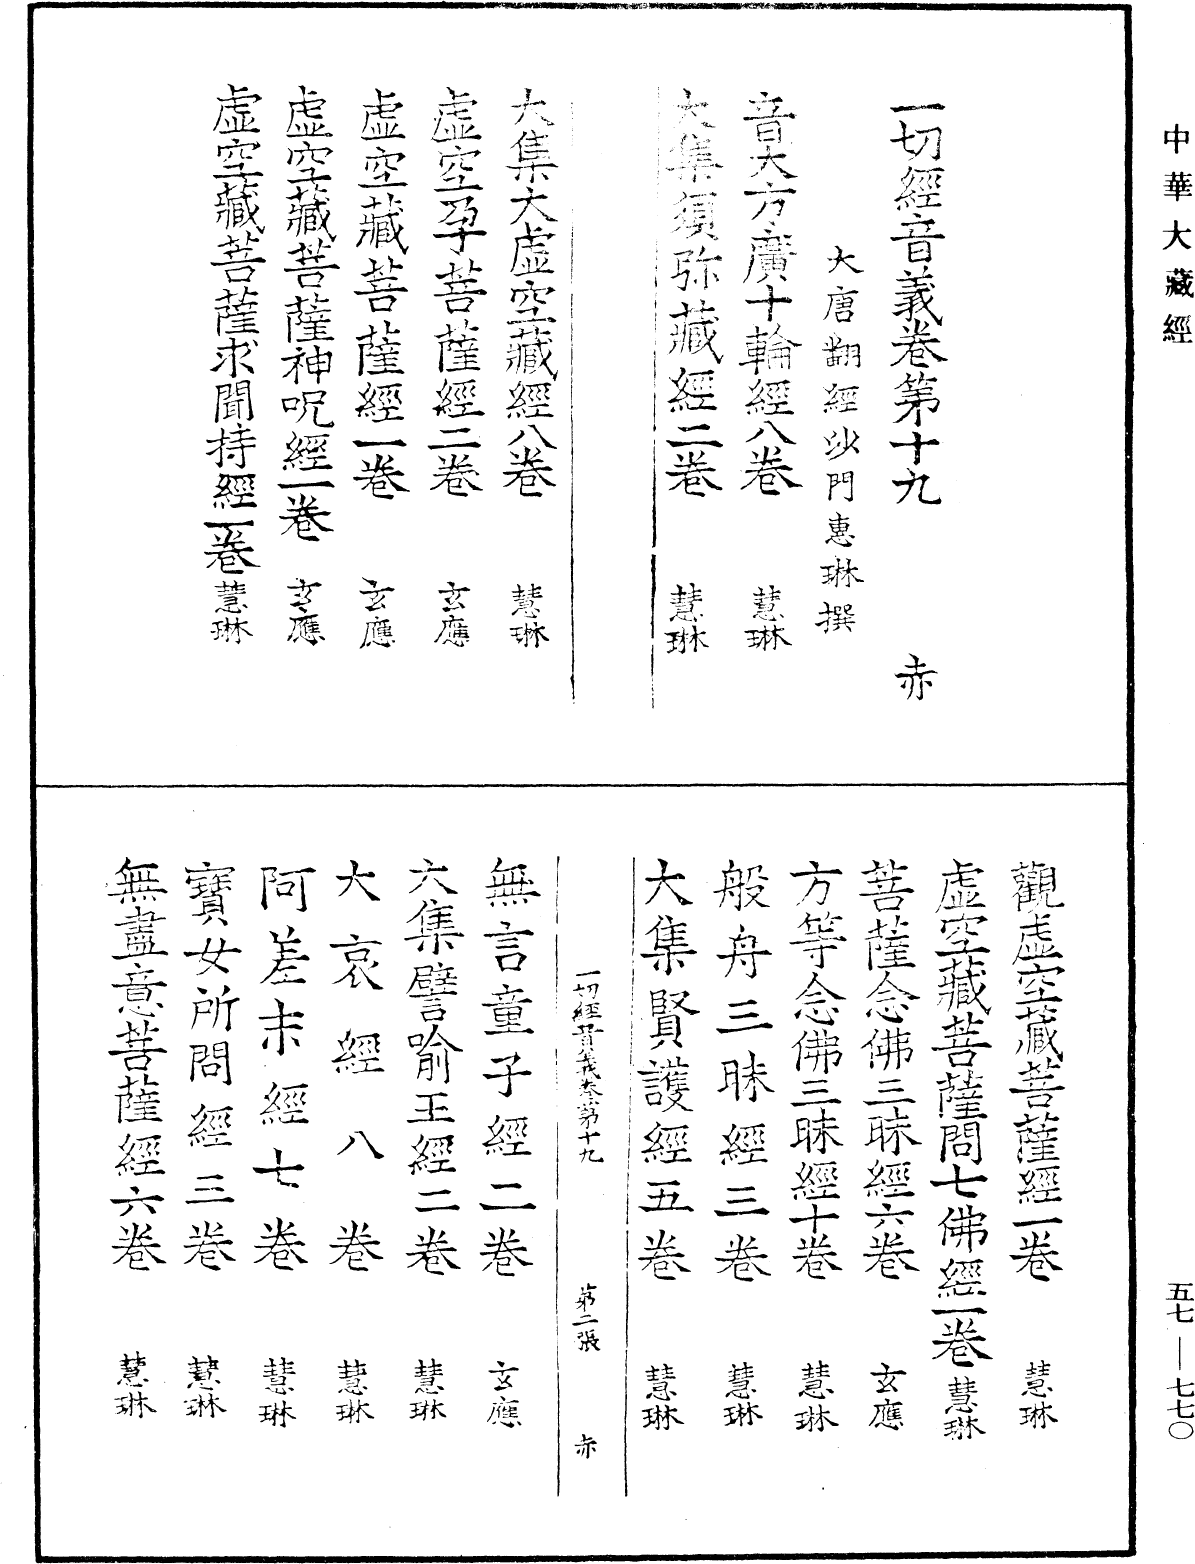 中華大藏經
一切經音義卷第十九 赤
大唐翻經沙門惠琳撰
音大方廣十輪經八卷 慧琳
大集須弥藏經二卷 慧琳
大集大虛空藏經八卷 慧琳
虛空孕菩薩經二卷 玄應
虛空藏菩薩經一卷 玄應
虛空藏菩薩神呪經一卷 玄應
虛空藏菩薩求聞持經一卷 慧琳
觀虛空藏菩薩經一卷 慧琳
虛空藏菩薩問七佛經一卷 慧琳
菩薩念佛三昧經六卷 玄應
方等念佛三昧經十卷 慧琳
般舟三昧經三卷 慧琳
大集賢護經五卷 慧琳
一切經音義卷第十九 第二張 赤
無言童子經二卷 玄應
大集譬喻王經二卷 慧琳
大哀經八卷 慧琳
阿差末經七卷 慧琳
寶女所問經三卷 慧琳
無盡意菩薩經六卷 慧琳
五七—七七〇